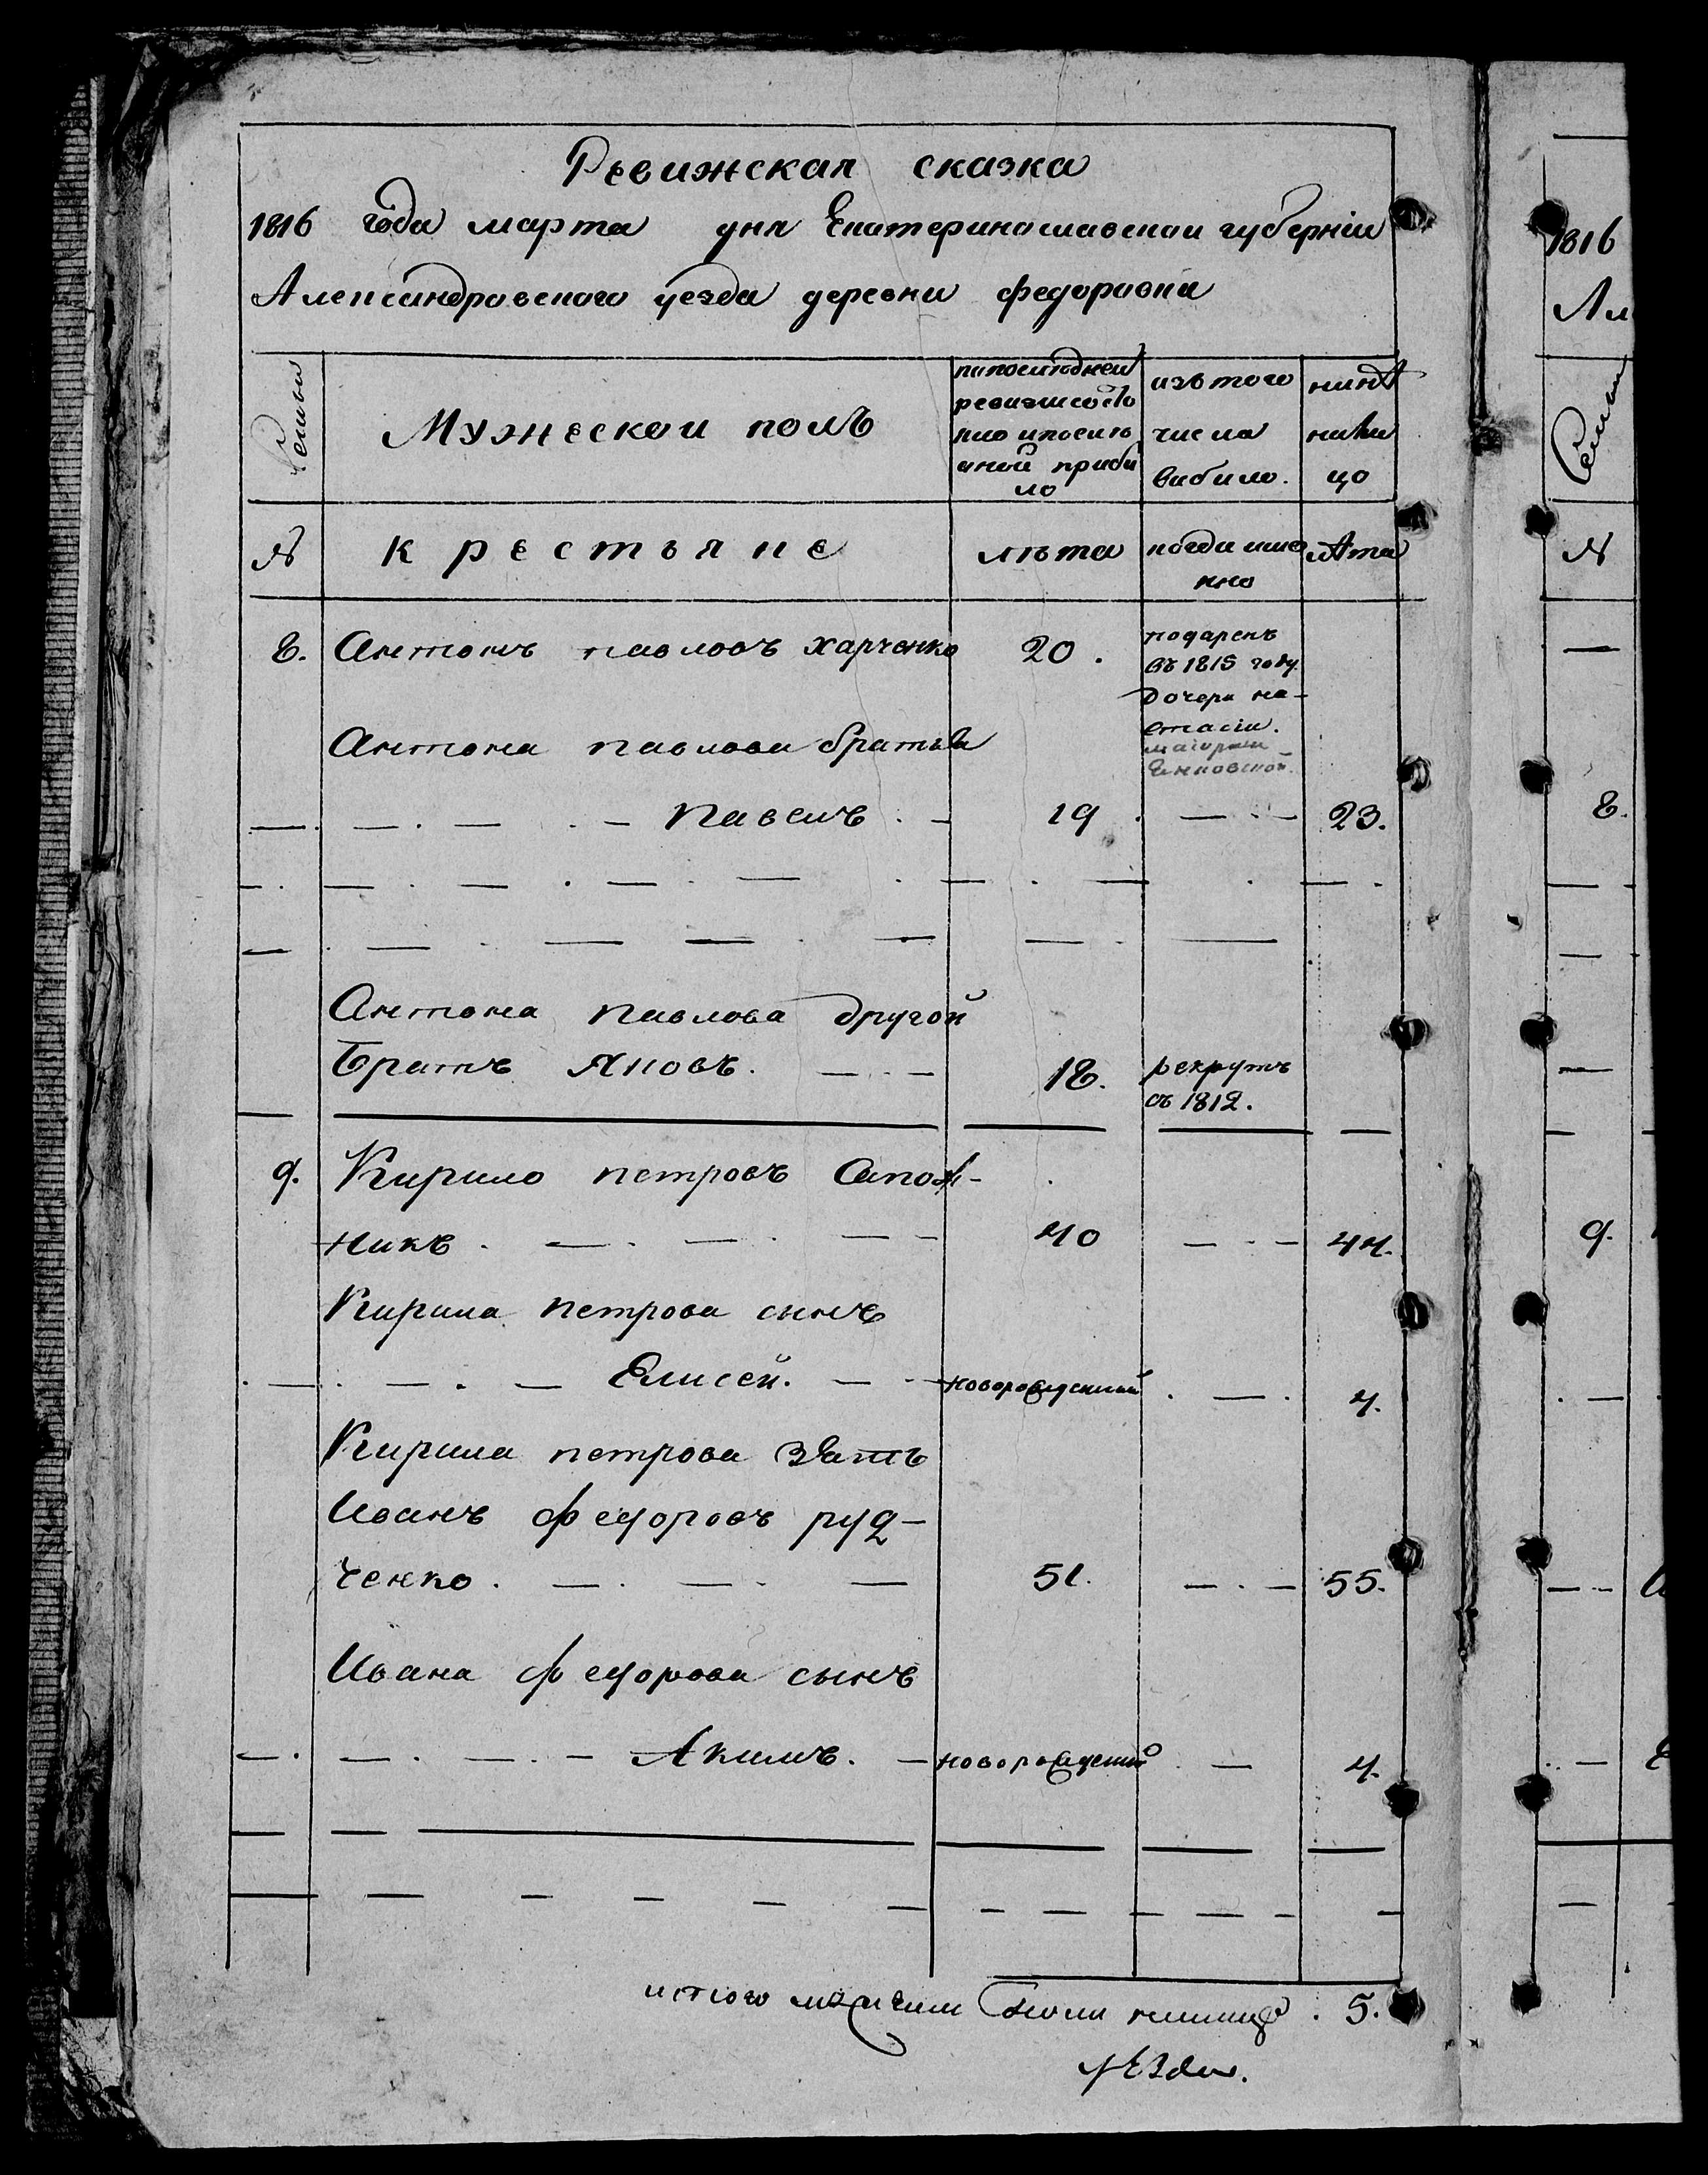 Ревижская сказка
1816 года марта дня Екатеринославской губернiи
Александровского уезда деревни федоровки
Семьи
Мужескои полъ
изъ того
числа
выбило.
нинѣ
нали
цо
№ крестьяне лѣта когда име лѣта
нно
8. Антонъ павловъ харченко 20. подаренъ
въ 1815 году.
дочери на-
стасiи.
Антона павлова братья
— Павелъ. 19. — 23.
Антона павлова другой
братъ Яковъ. — 18. рекрутъ
въ 1812.
9. Кирило петровъ Сапож-
никъ. — 40 — 44.
Кирила петрова сынъ
— Елисей. — новорожденный. — 4.
Кирила петрова зять
Иванъ федоровъ руд-
ченко. — 51. — 55.
Ивана федорова сынъ
— Акимъ. — новорожденный — 4.
итого 5.
1816
Ал
Семьи
№
8.
9.